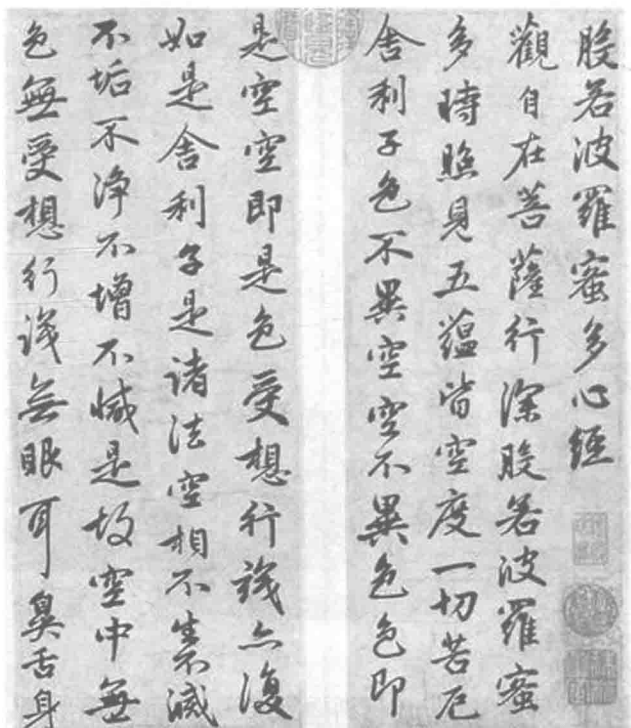 般若波羅蜜多心經
觀自在菩薩行深般若波羅蜜
多時照見五蘊皆空度一切苦厄
舍利子色不異空空不異色色即
是空空即是色受想行識亦復
如是舍利子是諸法空相不生不滅
不垢不淨不增不減是故空中無
色無受想行識無眼耳鼻舌身